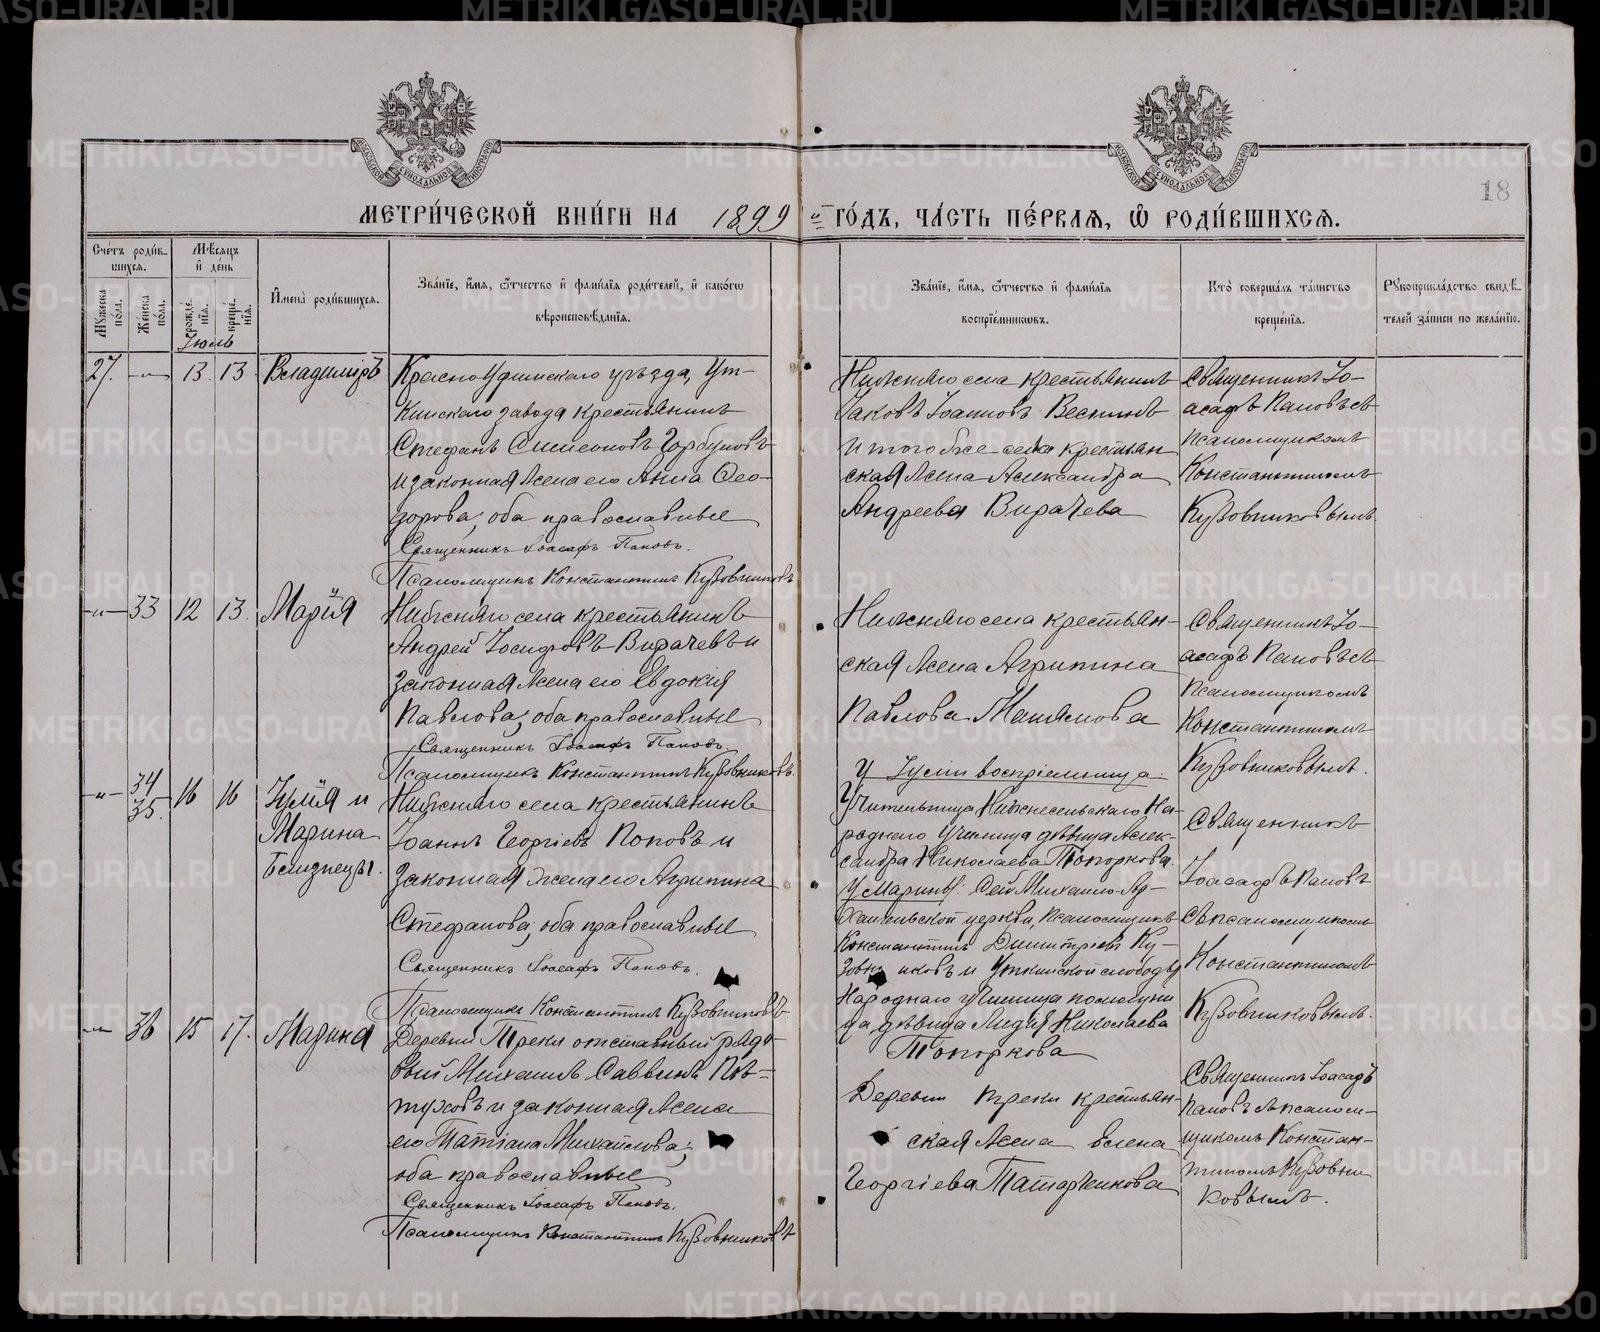 18
МЕТРИ́ЧЕСКОЙ КНИ́ГИ НА 1899 й ГО́ДЪ, ЧА́СТЬ ПЕ́РВАЯ, Ѡ РОДИ́ВШИХСЯ.
Сче́тъ роди́в-
шихся.
Му́жеска по́ла.
Же́нска по́ла.
Мѣ́сяцъ
и де́нь
рожде́нїя.
креще́нїя.
Июль
Имена̀ роди́вшихся.
Зва́нїе, и́мя, ѻ́тчество и фами́лїя роди́телей, и како́гѡ
вѣроисповѣ́данїя.
Зва́нїе, и́мя, ѻ́тчество и фами́лїя
воспрїе́мниковъ.
Кто̀ соверша́лъ та́инство
креще́нїя.
Рукоприкла́дство свидѣ́-
телей за́писи по жела́нїю.
27. —"— 13 13 Владимiръ
Красноуфимскаго уѣзда, Ут-
кинскаго завода крестьянинъ
Стефанъ Симеоновъ Горбуновъ
и законная жена его Анна Ѳео-
дорова; оба православные
Священникъ Iоасафъ Пановъ.
Псаломщикъ Константинъ Кузовниковъ
Нижняго села крестьянинъ
Iаковъ Iоанновъ Веснинъ
и того же села крестьян
ская жена Александра
Андреева Вирачева
Священникъ Iо-
асафъ Пановъ съ
псаломщикомъ
Константиномъ
Кузовниковымъ
—"— 33 12 13. Марiя
Нижняго села крестьянинъ
Андрей Iосифовъ Вирачевъ и
законная жена его Евдокiя
Павлова; оба православные
Священникъ Iоасафъ Пановъ
Псаломщикъ Константинъ Кузовниковъ.
Нижняго села крестьян-
ская жена Агрипина
Павлова
Священникъ Iо-
асафъ Пановъ съ
псаломщикомъ
Константиномъ
Кузовниковымъ.
—"— 34 35. 16 16 Iулiя и
Марина
близнецы.
Нижняго села крестьянинъ
Iоаннъ Георгiевъ Поповъ и
законная жена его Агрипина
Стефанова; оба православные
Священникъ Iоасафъ Пановъ.
Псаломщикъ Константинъ Кузовниковъ
У Iулiи воспрiемница
Учительница Нижнесельскаго На-
роднаго училища дѣвица Алек-
сандра Николаева Топоркова.
У Марины: сей Михаило-Ар-
хангельской церкви, псаломщикъ
Константинъ Димитрiевъ Ку-
зовниковъ и Уткинской слободы
Народнаго училища помощни
ца дѣвица Лидiя Николаева
Топоркова
Священникъ
Iоасафъ Пановъ
съ псаломщикомъ
Константиномъ
Кузовниковымъ.
—"— 36 15 17. Марина
Деревни Треки отставный рядо-
вый Михаилъ Саввинъ Пѣ-
туховъ и законная жена
его Татiана Михайлова;
оба православные
Священникъ Iоасафъ Пановъ.
Псаломщикъ Константинъ Кузовниковъ
Деревни Треки крестьян-
ская жена Елена
Георгiева Татарченкова
Священникъ Iоасафъ
Пановъ съ псалом-
щикомъ Констан-
тиномъ Кузовни
ковымъ.
METRIKI.GASO-URAL.RU